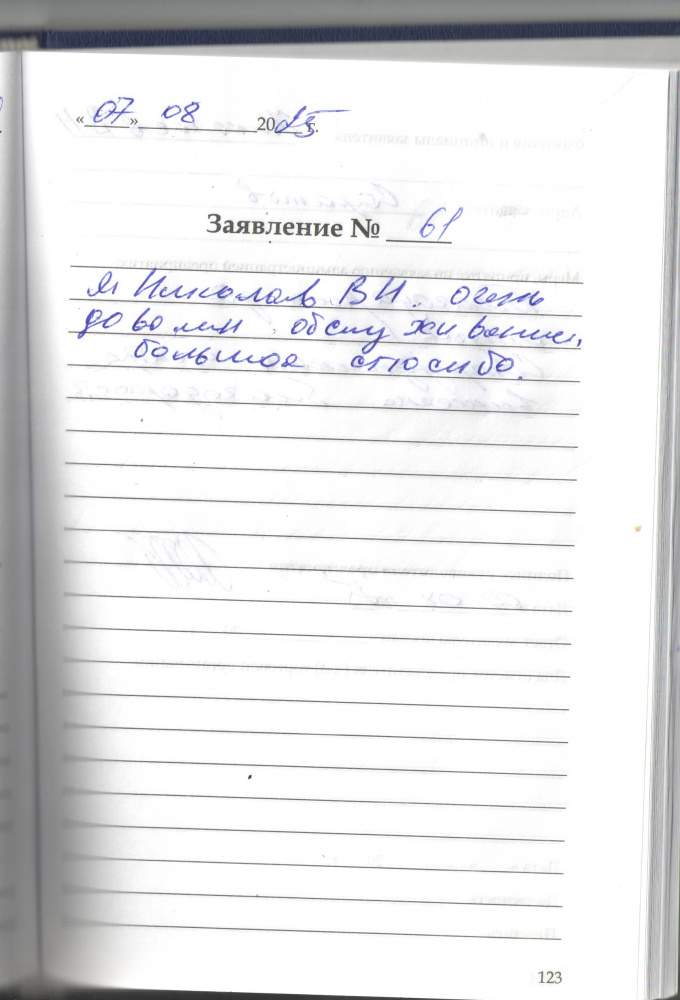 «07» 08 2025 г.
Заявление № 61
Я Николаев В И. очень
доволин обслуживанием,
большое спосибо.
123